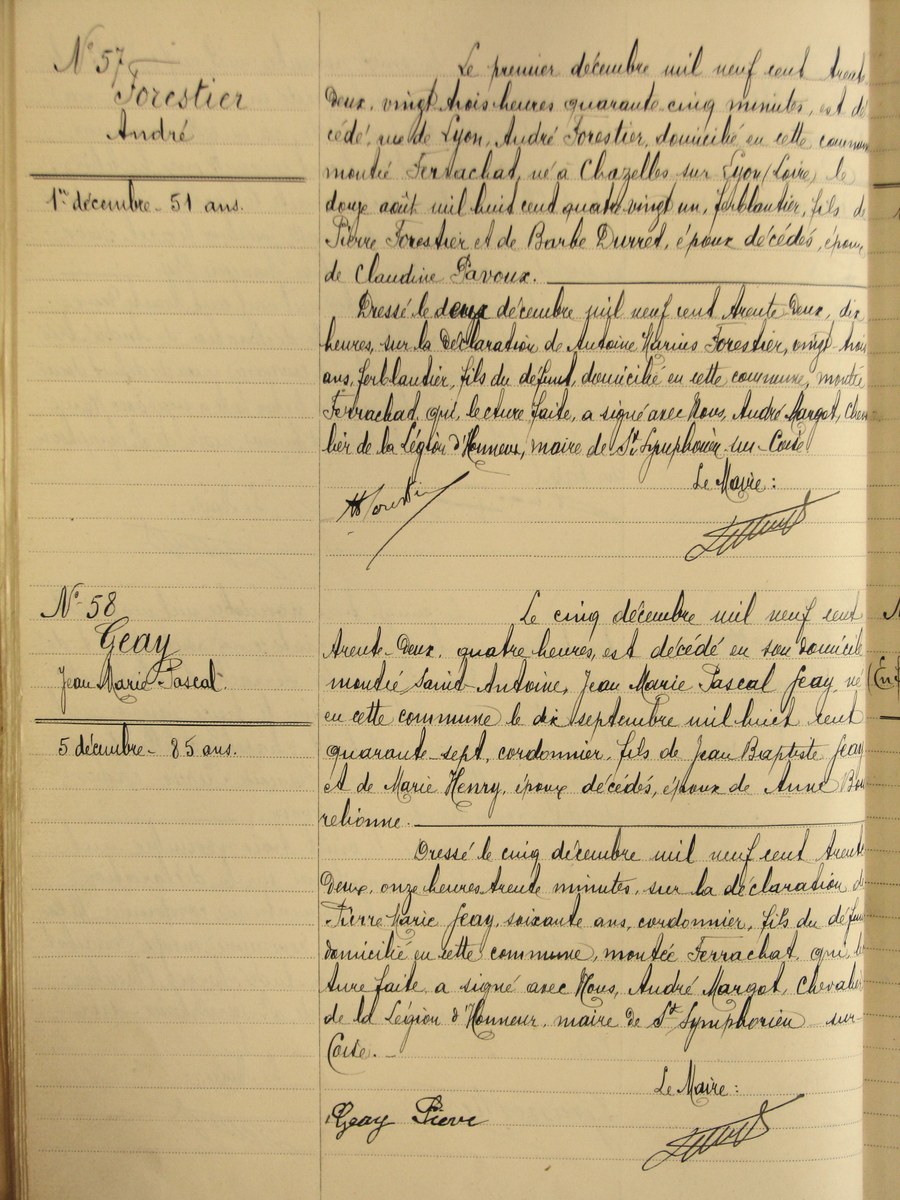 N° 57
Forestier
André
1er décembre - 51 ans.
Le premier décembre mil neuf cent trente
deux, vingt trois heures quarante cinq minutes, est dé
cédé, rue de Lyon, André Forestier, domicilié en cette commun
montée Ferrachat, né à Chazelles sur Lyon (Loire) le
douze août mil huit cent quatre vingt un, ferblantier, fils de
Pierre Forestier et de Barbe Durret, époux décédés, époux
de Claudine Pavoux.
Dressé le deux décembre mil neuf cent trente deux, dix
heures, sur la déclaration de Antoine Marius Forestier, vingt trois
ans, ferblantier, fils du défunt, domicilié en cette commune, montée
Ferrachat, qui, lecture faite, a signé avec Nous, André Margot, Cheva
lier de la Légion d'Honneur, maire de St Symphorien-sur-Coise
Le Maire :
N° 58
Geay
Jean Marie Pascal.
5 décembre - 85 ans.
Le cinq décembre mil neuf cent
trente-deux, quatre heures, est décédé en son domicile
montée Saint-Antoine, Jean Marie Pascal Geay né
en cette commune le dix septembre mil huit cent
quarante-sept, cordonnier, fils de Jean Baptiste Geay
et de Marie Henry, époux décédés, époux de Anne Bou
relionne.
Dressé le cinq décembre mil neuf cent trente
deux, onze heures trente minutes, sur la déclaration d
Pierre Marie Geay, soixante ans, cordonnier, fils du défun
domicilié en cette commune, montée Ferrachat, qui, le
ture faite, a signé avec Nous, André Margot, Chevalier
de la Légion d'Honneur, maire de St Symphorien sur-
Coise.
Le Maire :
Geay Pierre